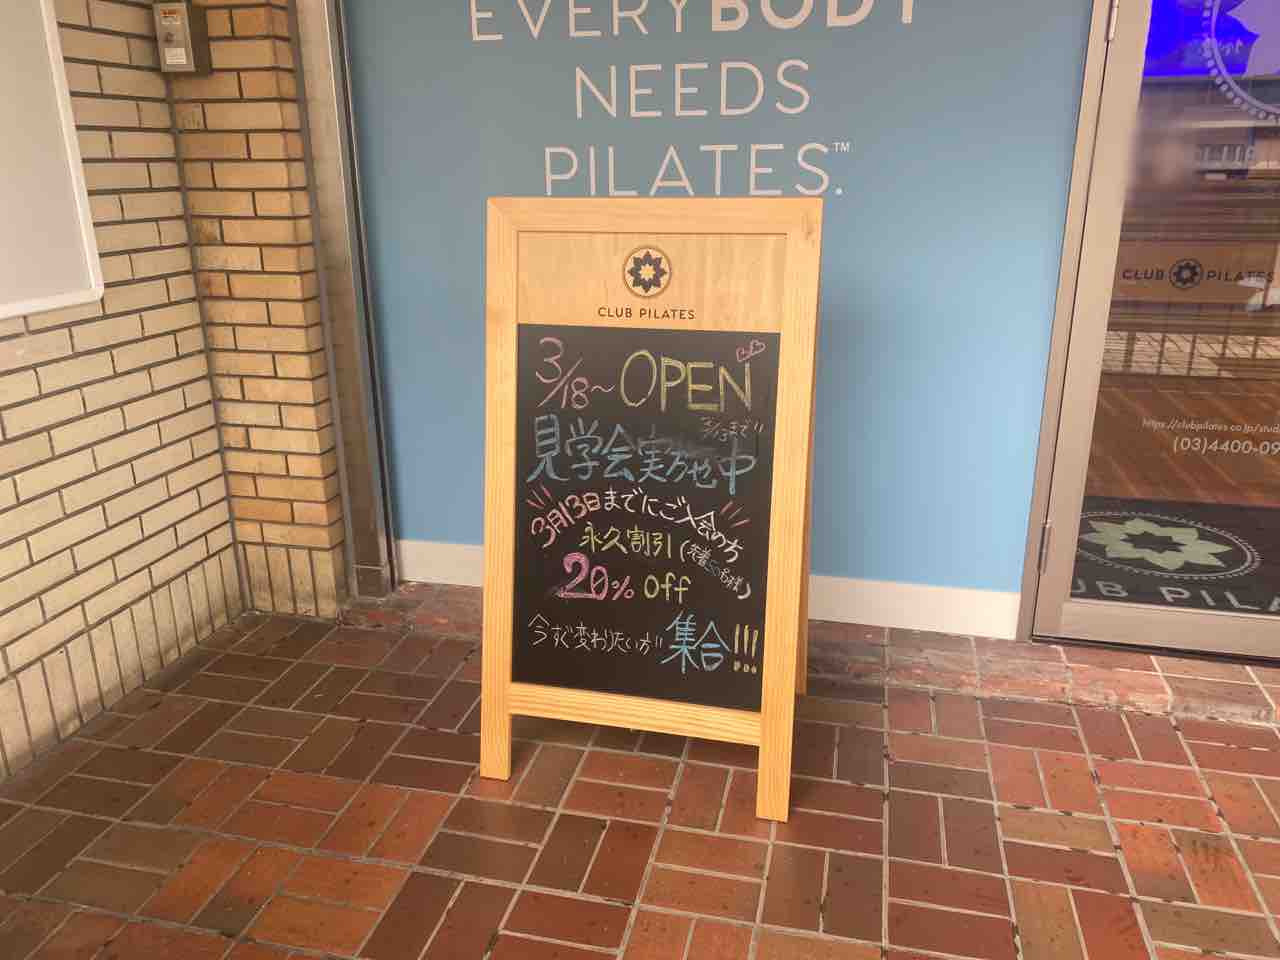 EVERYBODY
NEEDS
PILATES.™
CLUB PILATES
3/18~ OPEN
3/13まで!!
見学会実施中
3月13日までにご入会の方
永久割引(先着 名様)
20% off
今すぐ変わりたい方 集合!!!
CLUB PILATES
https://clubpilates.co.jp/stud
(03)4400-09
CLUB PILA